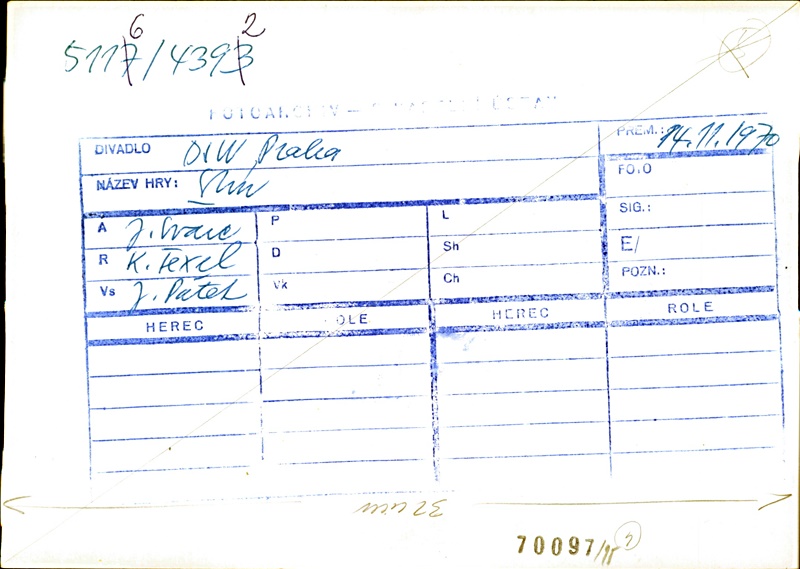 5117/4393
6 2
FOTOARCHIV – DIVADELNÍ ÚSTAV
DIVADLO DvW Praha
PREM.: 14.11.1970
NÁZEV HRY:
FOTO
A J. Švanc
P
L
SIG.:
R K. Texel
D
Sh
E/
Vs J. Pátek
Vk
Ch
POZN.:
HEREC ROLE HEREC ROLE
32 mm
70097/95 2